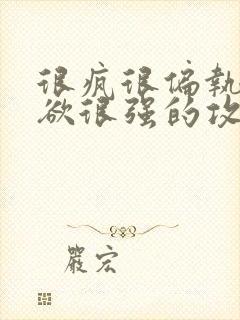 很疯很偏執
欲很强的攻
嚴宏